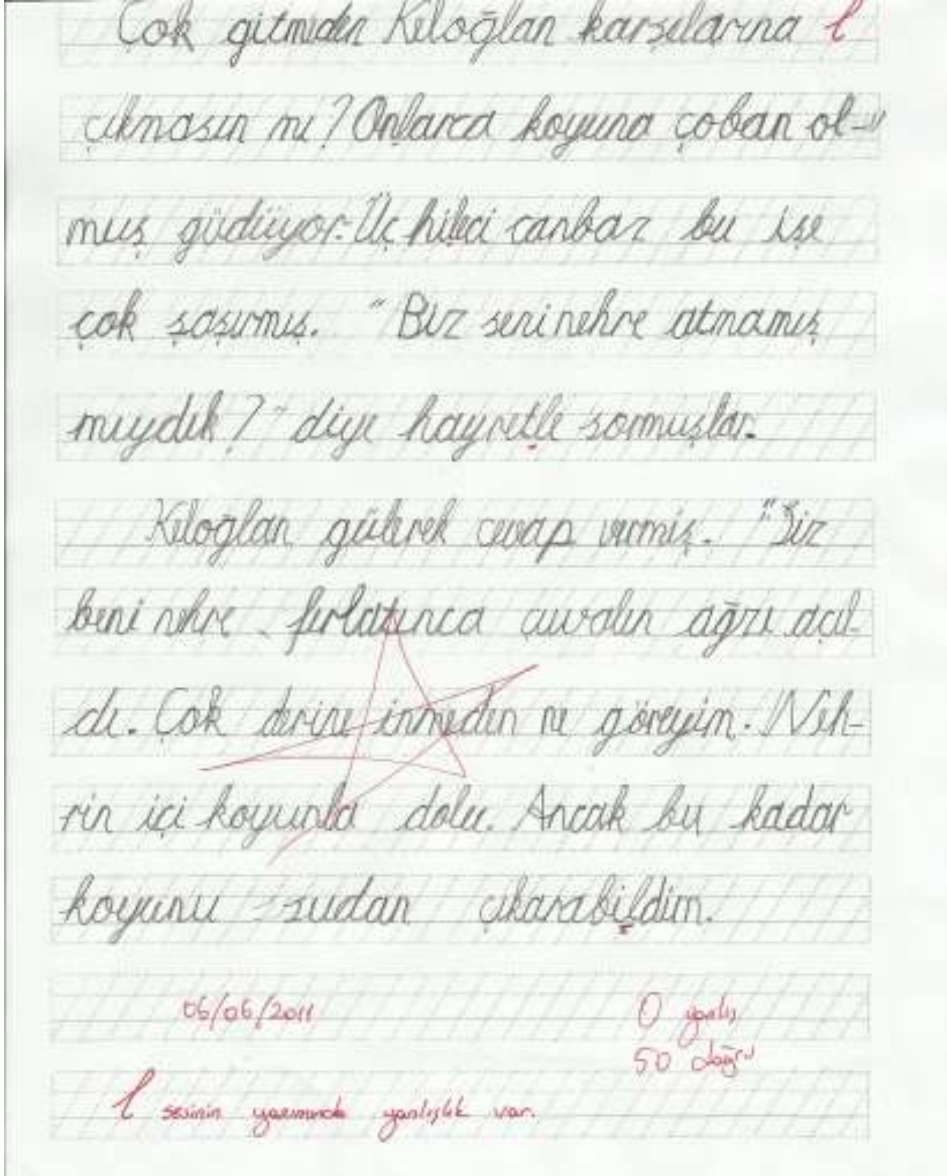 Çok gitmeden Keloğlan karşılarına l
çıkmasın mı? Onlarca koyuna çoban ol-
muş güdüyor. Üç hileci canbaz bu işe
çok şaşırmış. "Biz seni nehre atmamış
mıydık?" diye hayretle sormuşlar.
Keloğlan gülerek cevap vermiş. "Siz
beni nehre fırlatınca çuvalın ağzı açıl-
dı. Çok derine inmeden ne göreyim. Neh-
rin içi koyunla dolu. Ancak bu kadar
koyunu sudan çıkarabildim.
06/06/2011 0 yanlış
50 doğru
l sesinin yazımında yanlışlık var.